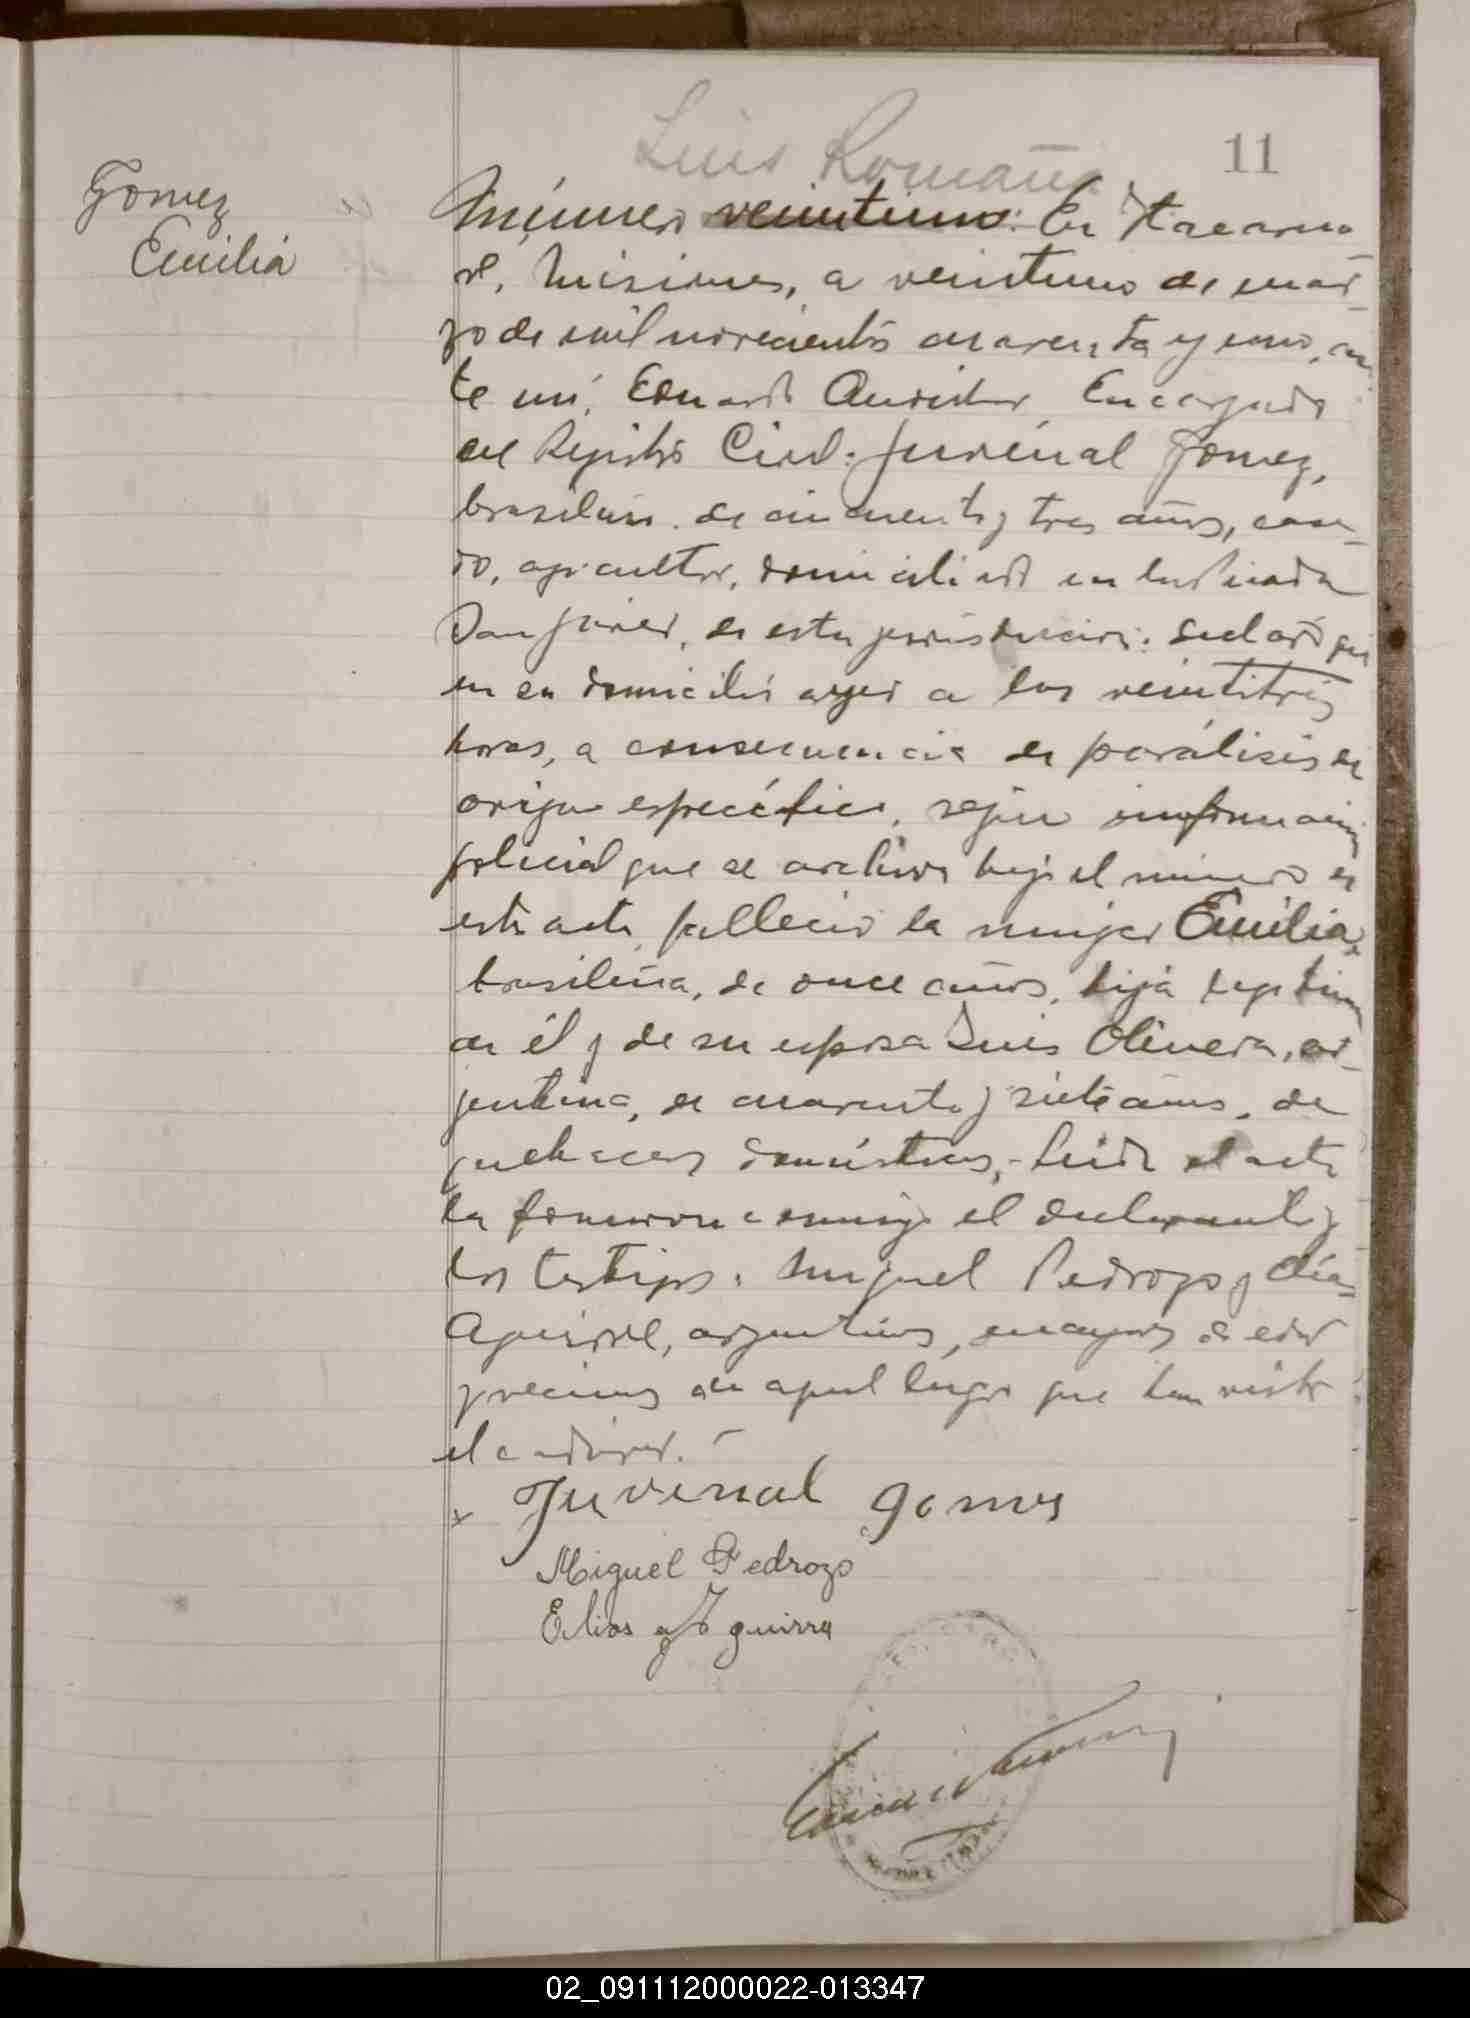 Luis Romaña
11
Gomez
Emilia
Número veintiuno: En Itacarua
ré, Misiones, a veintiuno de mar
zo de mil novecientos cuarenta y uno, an
te mí, Encargado
del Registro Civil: Juvenal Gomez,
brasilero de cincuenta y tres años, casa
do, agricultor, domiciliado en
San Javier, de esta jurisdicción: declaró que
en su domicilio ayer a las veintitrés
horas, a consecuencia de parálisis de
origen específico, según información
policial que se archiva bajo el número de
esta acta, falleció la mujer Emilia,
brasileña, de once años, hija legítima
de él y de su esposa Luis Olivera, ar
jentina, de cuarenta y siete años, de
quehaceres domésticos,- Leída el acta
la firmaron conmigo el declarante y
los testigos: Miguel Pedrozo y Elías
Aguirre, argentinos, mayores de edad
y vecinos de aquel lugar que han visto
el cadáver.-
x Juvenal gomes
Miguel Pedrozo
Elias Aguirra
02_091112000022-013347